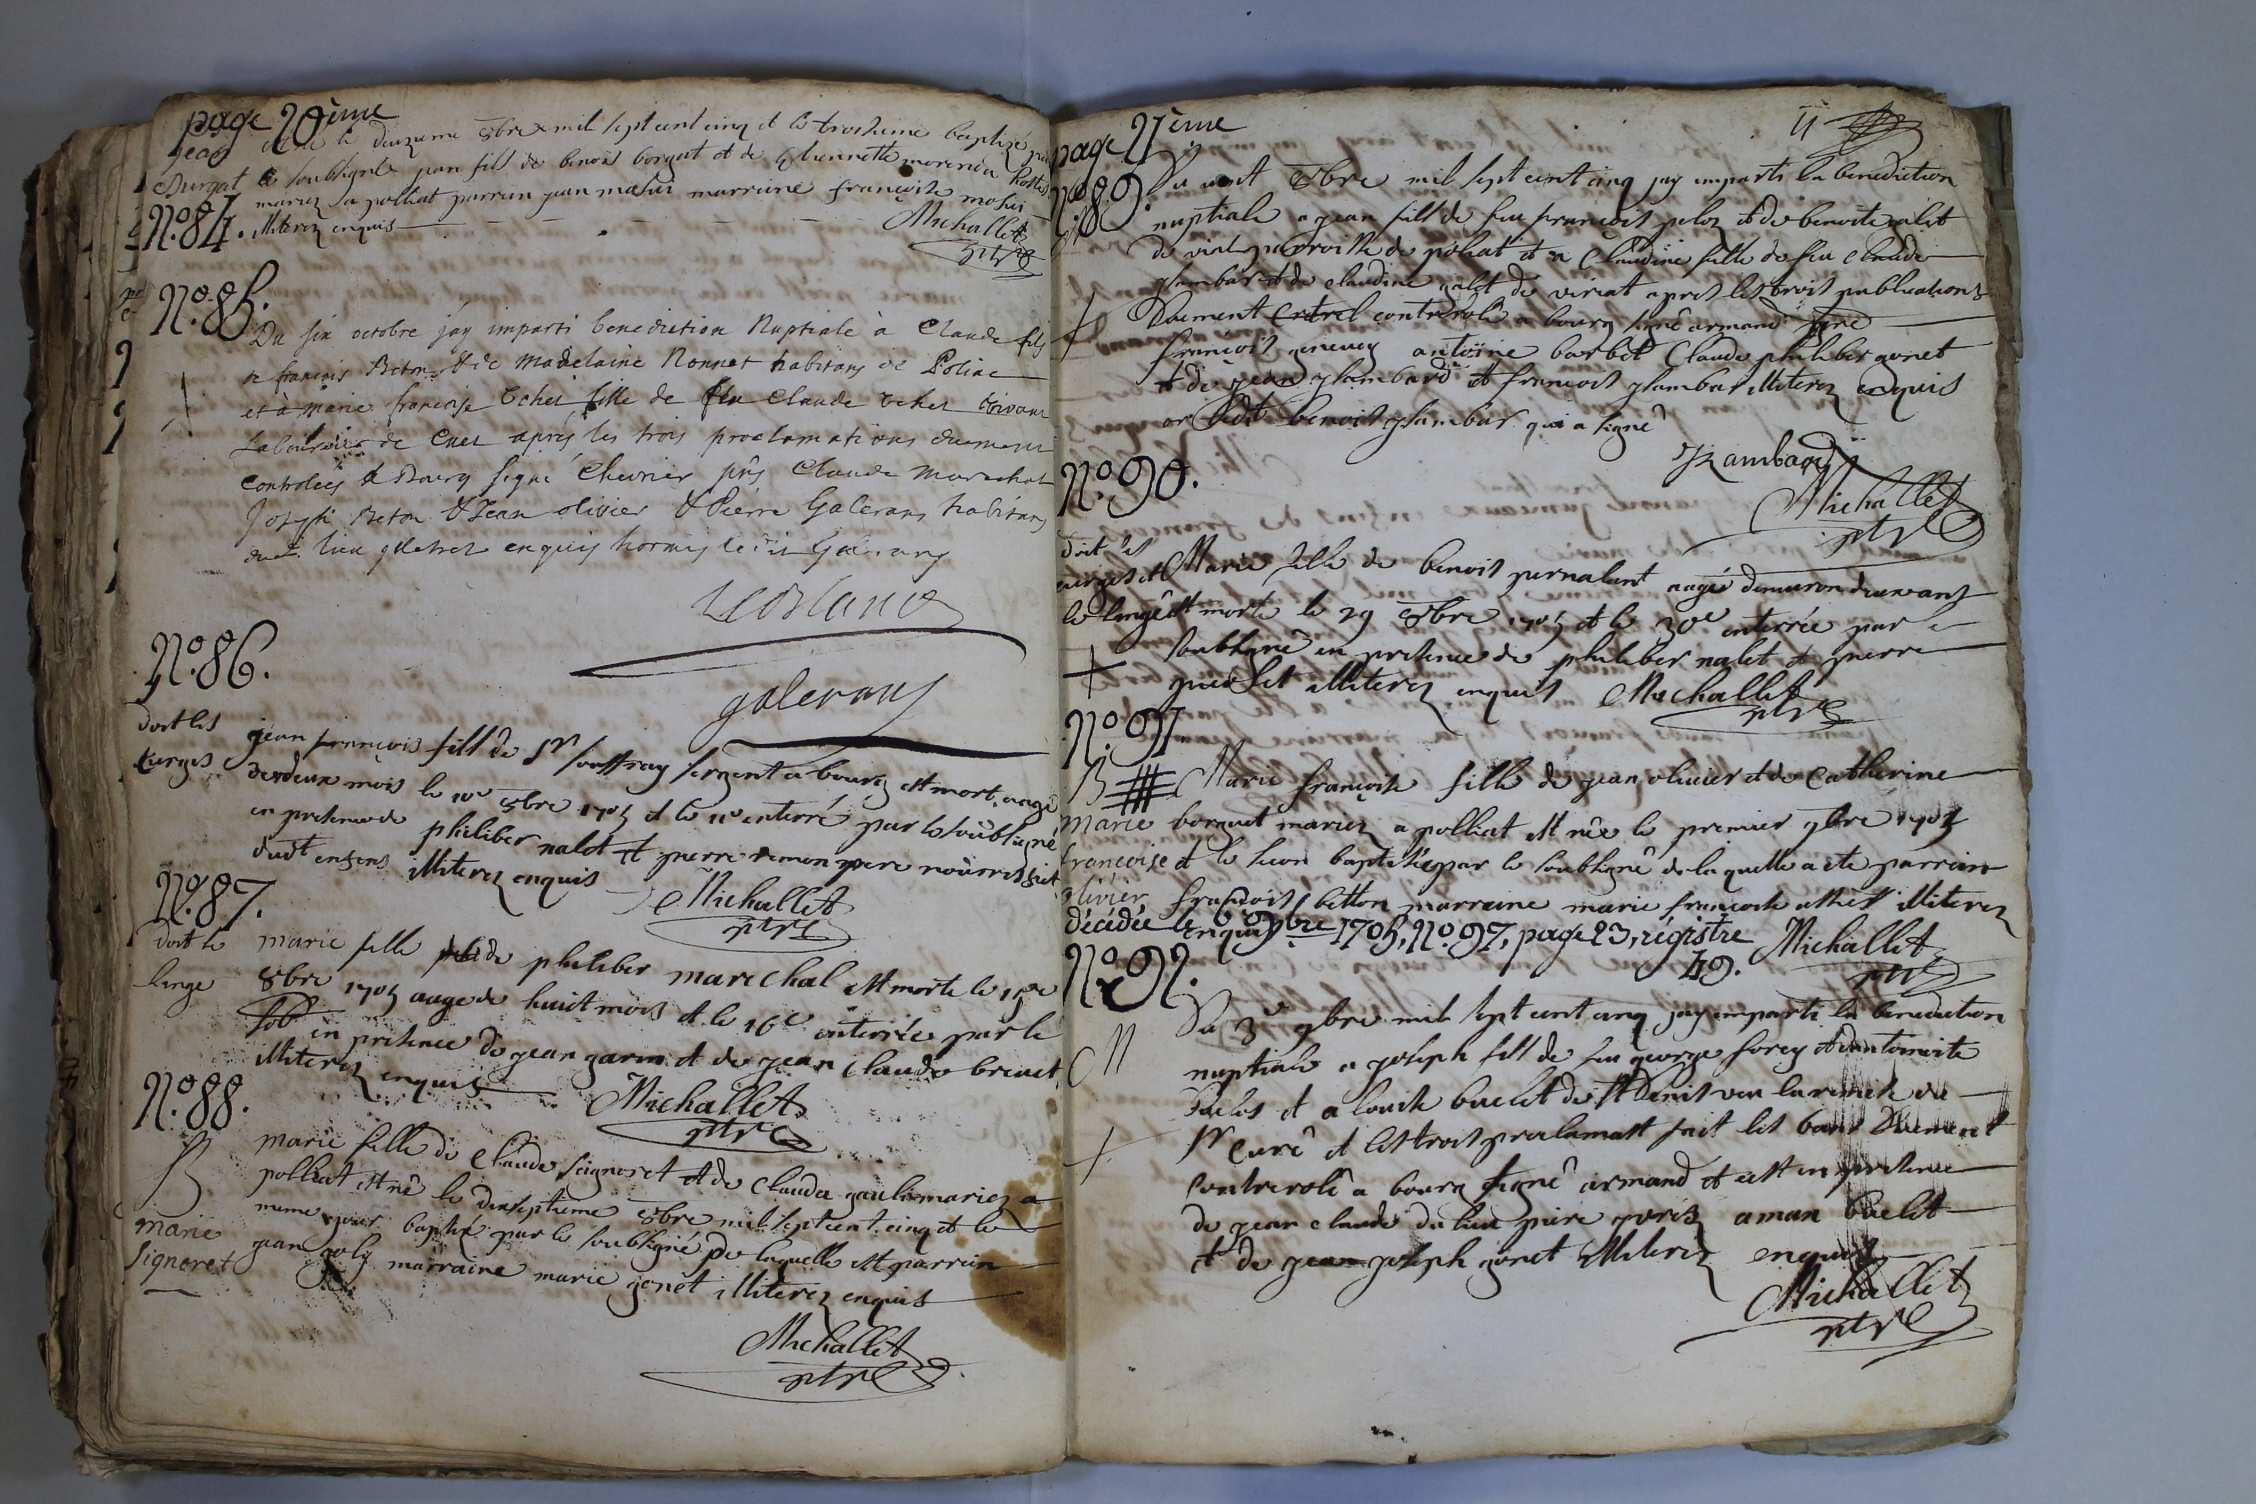 page 20ème
jean né le deuxieme 8bre mil sept cent cinq et le troisieme baptizé par
Burgat le soubsigné jean fils de benoit borgat et de Estiennette morandu
mariez a polliat parrin jean mosui marraine françoise mosui
N.º 84. illiterez enquis
Michallet
ptre
N.º 85.
Du six octobre jay imparti benediction Nuptiale à Claude fils
de françois Beton & de Madelaine Nonnet habitans de Poliac
et à marie françoise fille de feu Claude vivant
Laboureur de après les trois proclamations duement
controlées à Bourg signé Chevrier pñs Claude Marechat
Joseph Beton & Jean olivier & Pierre Galerans habitans
dud. lieu illetrez enquis hormis ledit Galerans
galerans
N.º 86.
doit les jean françois fils de Sr souffray sergent a bourg est mort aagé
cierges de deux mois le 10e 8bre 1705 et le 11e enterré par le soubsigné
en presence de philiber nalet et pierre remon pere nourrissier
dudt enfens illiterez enquis
Michallet
ptre
N.º 87.
doit le marie fille de philiber marechal est morte le 15e
linge 8bre 1705 aage de huict mois et le 16e enterrée par le
sobs en presence de jean garin et de jean Claude brevet
illiterez enquis
Michallet
ptre
N.º 88.
B marie fille de Claude seignoret et de Clauda gaulx mariez a
polliat est né le dixseptieme 8bre mil sept cent cinq et le
marie meme jour baptizé par le soubsigné de laquelle est parrin
signoret jean joly marraine marie gonet illiterez enquis
Michallet
ptre
page 21ème
N.º 89. Du vint 8bre mil sept cent cinq jay imparti la benediction
nuptiale a jean fils de feu françois peloz et de benoite alit
de paroisse de poliat et a Claudine fille de feu Claude
glambar et de Claudine nalet de viriat apres les trois publications
Duement contrerolé a bourg signé armand
françois genevey antoine barbet Claude philiber gonet
et de jean glambard et françois glambar illiterez enquis
benoit glambar qui a signé
Rambaud
Michallet
ptre
N.º 90.
doit les
cierges et Marie fille de benoit pernalent aagé denviron deux ans
le linge est morte le 29 8bre 1705 et le 30e enterrée par le
soubsigné en presence de philiber nalet et pierre
illiterez enquis Michallet
ptre
N.º 91
B Marie françoise fille de jean olivier et de Catherine
marie borguet mariez a polliat est née le premier 9bre 1705
françoise et le baptisée par le soubsigné de laquelle a ete parrain
olivier françois betton marraine marie françoise illiterez
enquis
décédée le 9bre 1705, N.º 97, page 23, régistre
49. Michallet
ptre
N.º 92.
M Du 3e 9bre mil sept cent cinq jay imparti la benediction
nuptiale a joseph fils de feu george forey et dantoinette
et a louise buclet de St Denis veu la remise du
Sr Curé et les trois proclamaõns fait les bans Duement
Contrerolé a bourg signé armand et cest en presence
de jean claude du lieu aman buclet
et de jean joseph gonet illiterez enquis
Michallet
ptre